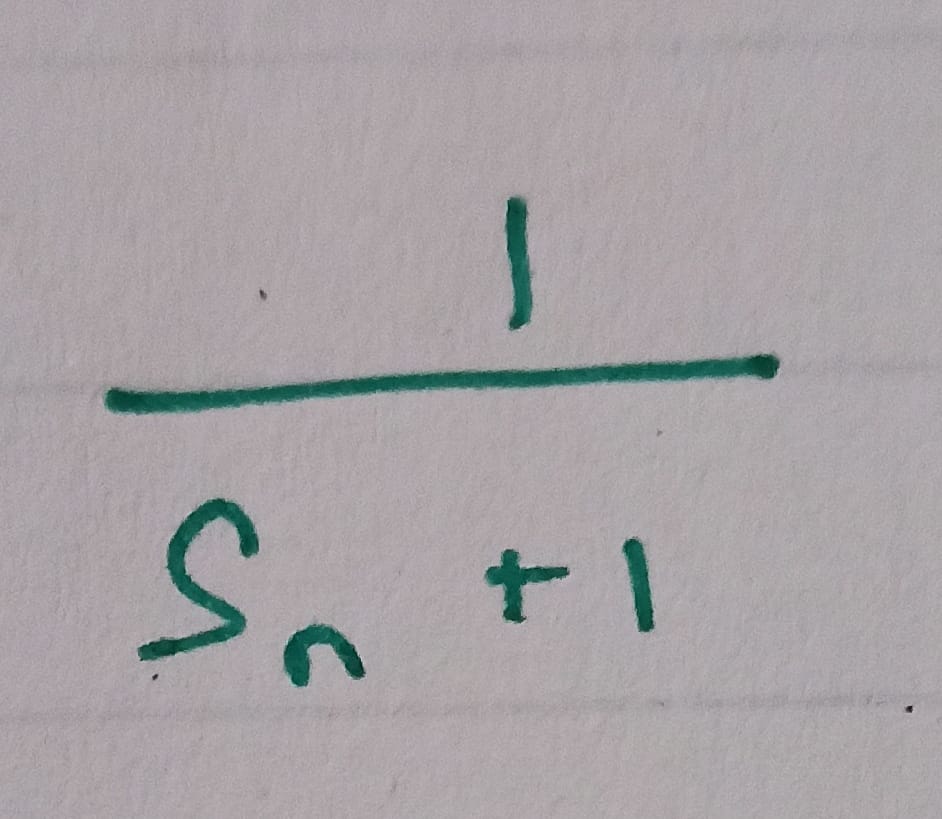 1
Sₙ + 1